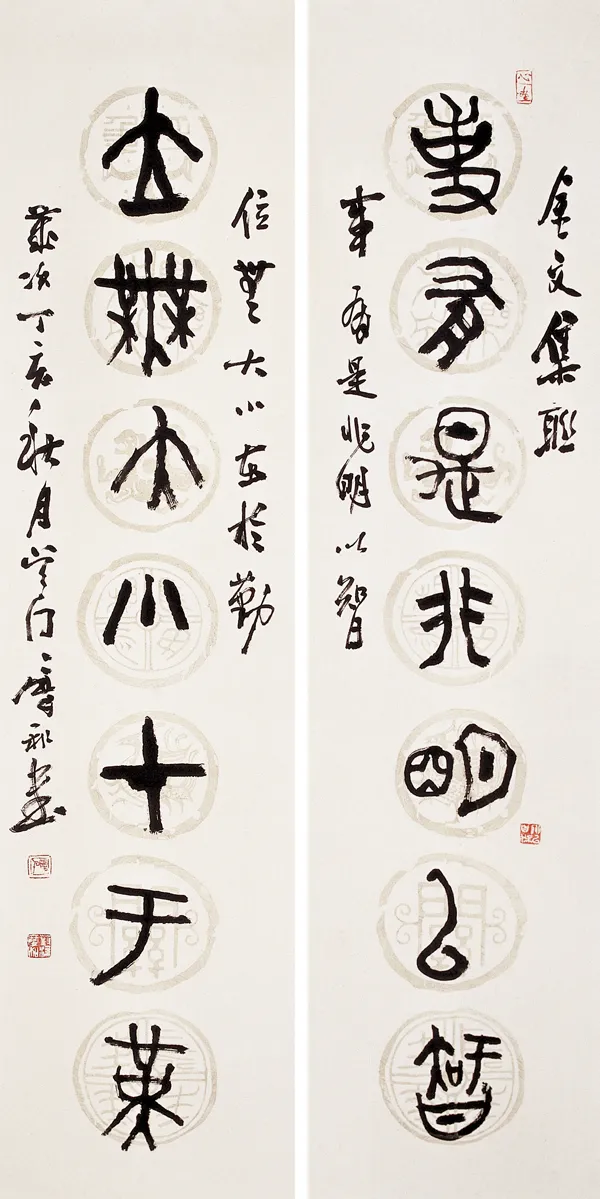 金文集聯
事有是非明以智
事有是非明以智
位無大小在於勤
位無大小在于勤
歲次丁亥秋月書